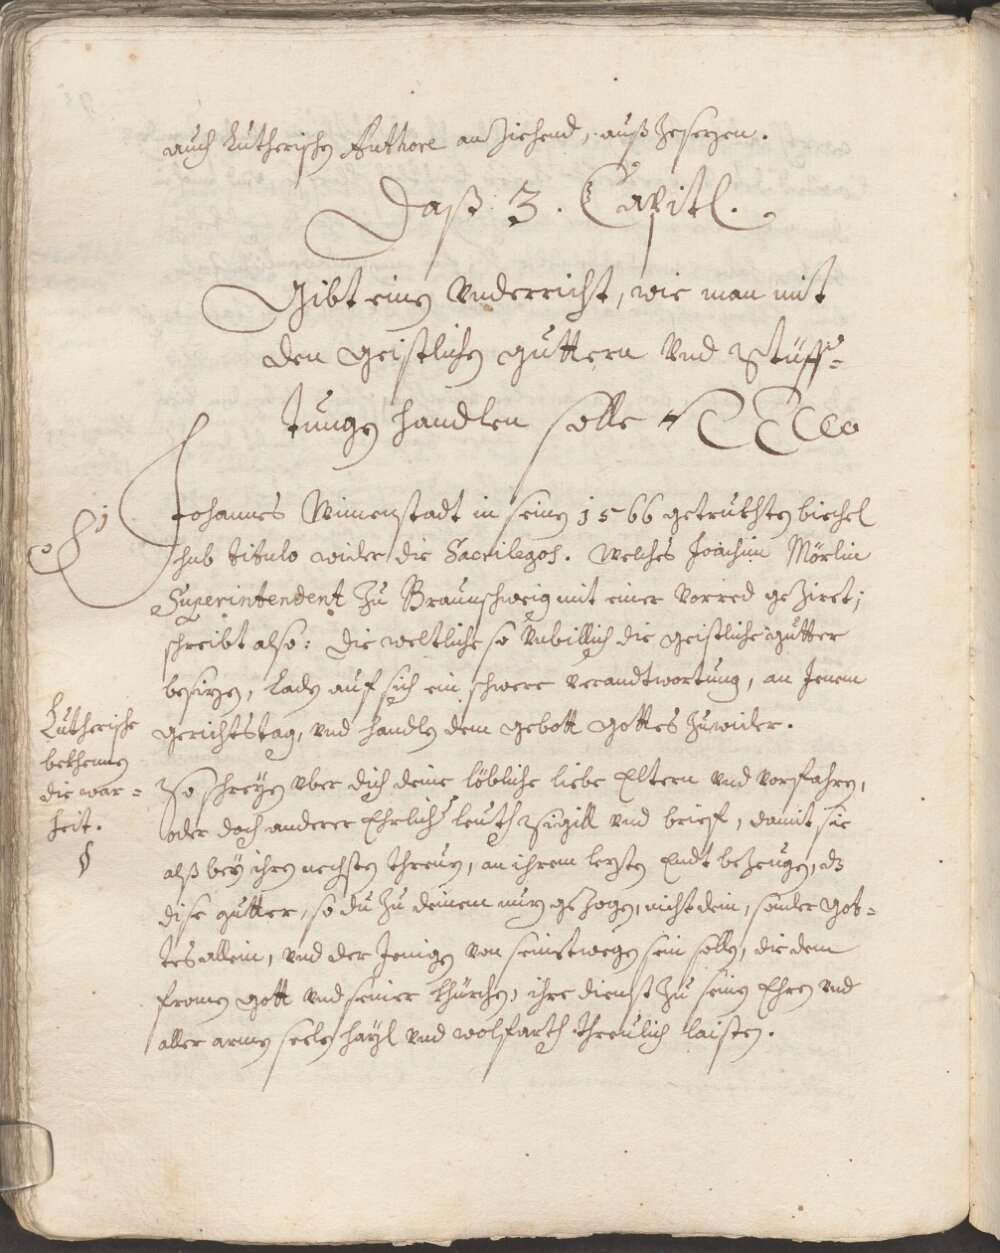 auch Lutherischen Authore anziehend, außzesezen.
Daß 3. Capitl.
Gibt einen Underricht, wie man mit
den geistlichen guttern und Stüff=
tungen handlen solle
§ 1
Johannes Winnenstadt in seinen 1566 getruckhten biechel
sub titulo wider die Sacrilegos. Welches Joachim Mörlin
Superintendent zu Braunschweig mit einer Vorred geziret;
schreibt also: die weltliche so unbillich die geistliche gutter
besizen, laden auf sich ein schwere verandtwortung, an Jenem
gerichtstag, und handlen dem gebott gottes zuwider.
Lutherische
bekhennen
die war=
heit.
§
So schreyen uber dich deine löbliche liebe Eltern und vorfahren,
oder doch anderer Ehrlicher leuth Sigill und brief, damit sie
alß bey ihren nechsten threuen, an ihrem lezten Endt bezeugen, dz
dise gutter, so du zu deinem nuzen gezogen, nicht dein, sonder Got=
tes allein, und der Jenigen von seinetwegen sein sollen, die dem
fromen gott und seiner Khürchen, ihre dienst zu seinen Ehren und
aller armen seelen hayl und wolfarth threulich laisten.